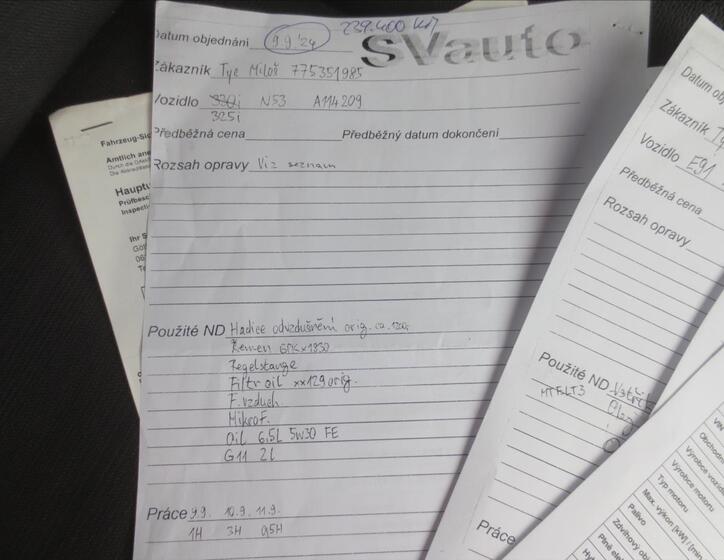 239.400 KM
Datum objednání 9.9.'24
SVauto
Zákazník Tye Miloš 775351985
Vozidlo 330i N53 A114209
325i
Předběžná cena Předběžný datum dokončení
Rozsah opravy Viz seznam
Použité ND Hadice odvzdušnění orig. ca.
Řemen 6PKx1830
Regelstange
Filtr oil xx129 orig.
F. vzduch
Mikrof.
Oil 6.5L 5w30 FE
G11 2l
Práce 9.9. 10.9. 11.9.
1H 3H 0,5H
Fahrzeug-Sic
Amtlich ane
Hauptu
Prüfbesc
Inspecti
Ihr S
Göt
06
Te
Datum obj
Zákazník
Vozidlo E91
Předběžná cena
Rozsah opravy
Použité ND
MTFLT3
Práce
VIN
Obchodní
Výrobce vozid
Výrobce motoru
Typ motoru
Max. výkon [kW] / [min
Palivo
Zdvihový ob
Plně